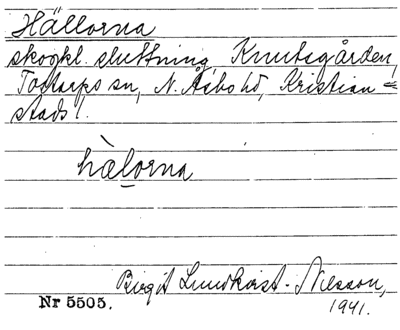 Hällorna
skogkl. sluttning, Knutsgården,
Tostarps sn, N. Åsbo hd, Kristian=
stads l.
hælorna
Birgit Lundkvist-Nilsson,
1941.
Nr 5505.